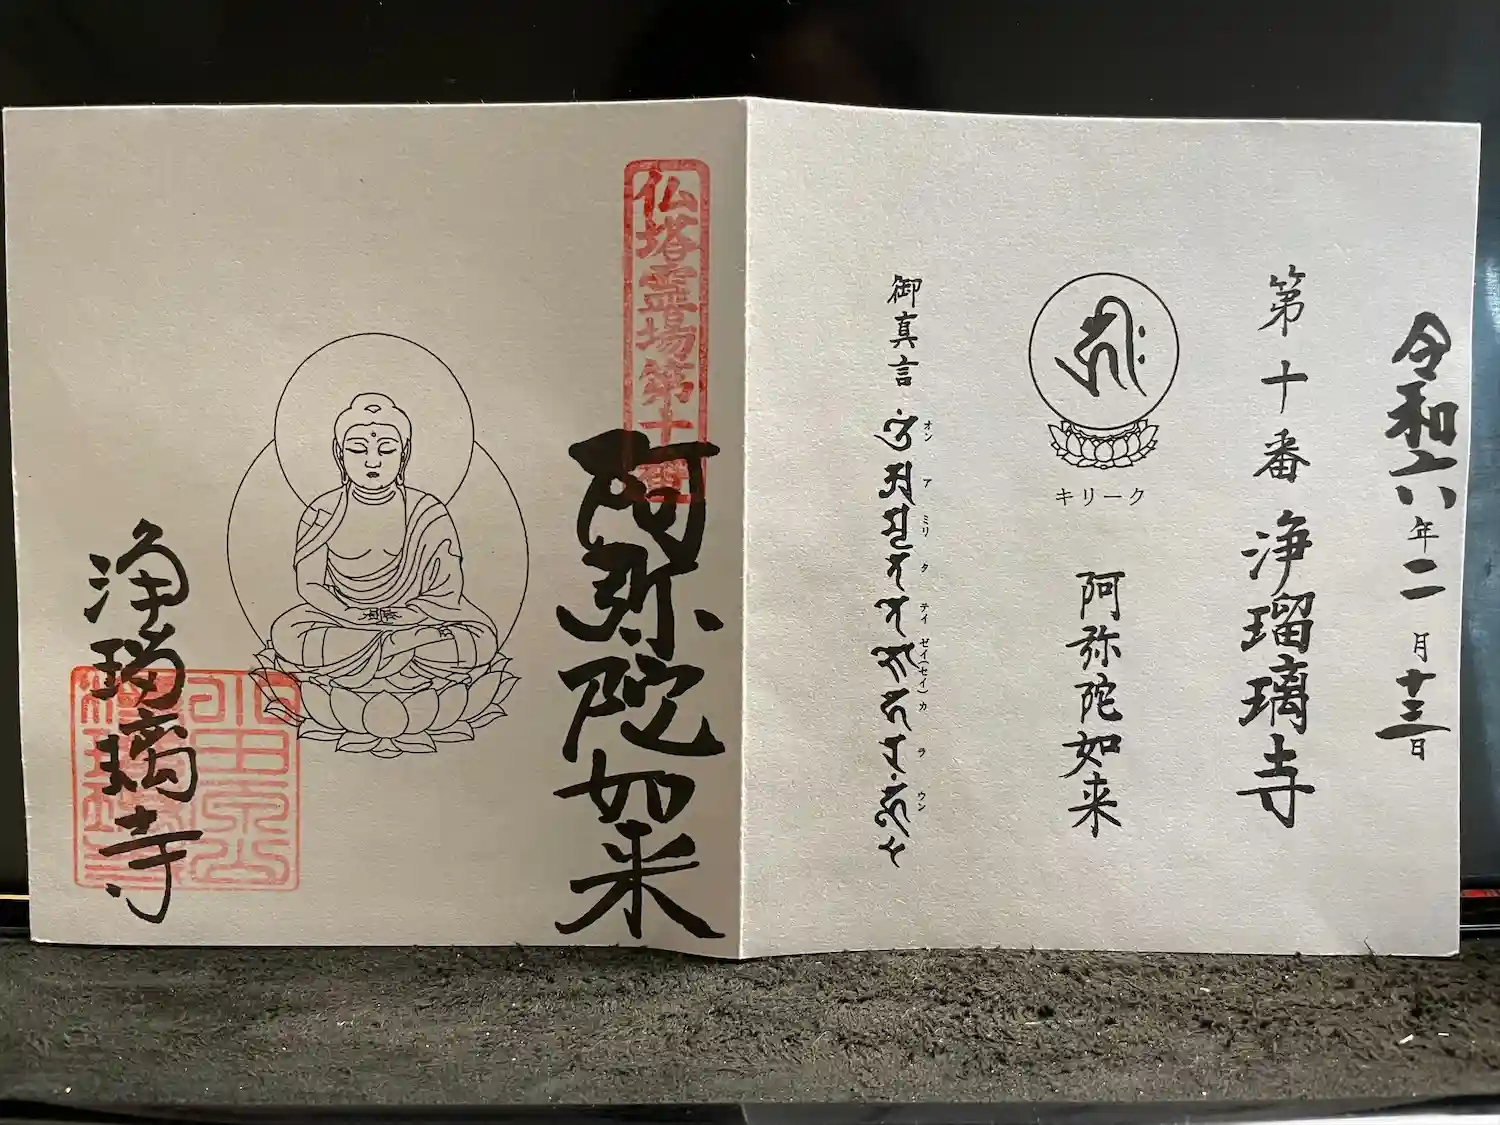 令和六年二月十三日
第十番 浄瑠璃寺
キリーク
阿弥陀如来
御真言
オン ア ミリ タ テイ ゼイ(セイ) カ ラ ウン
仏塔霊場第十番
阿弥陀如来
浄瑠璃寺